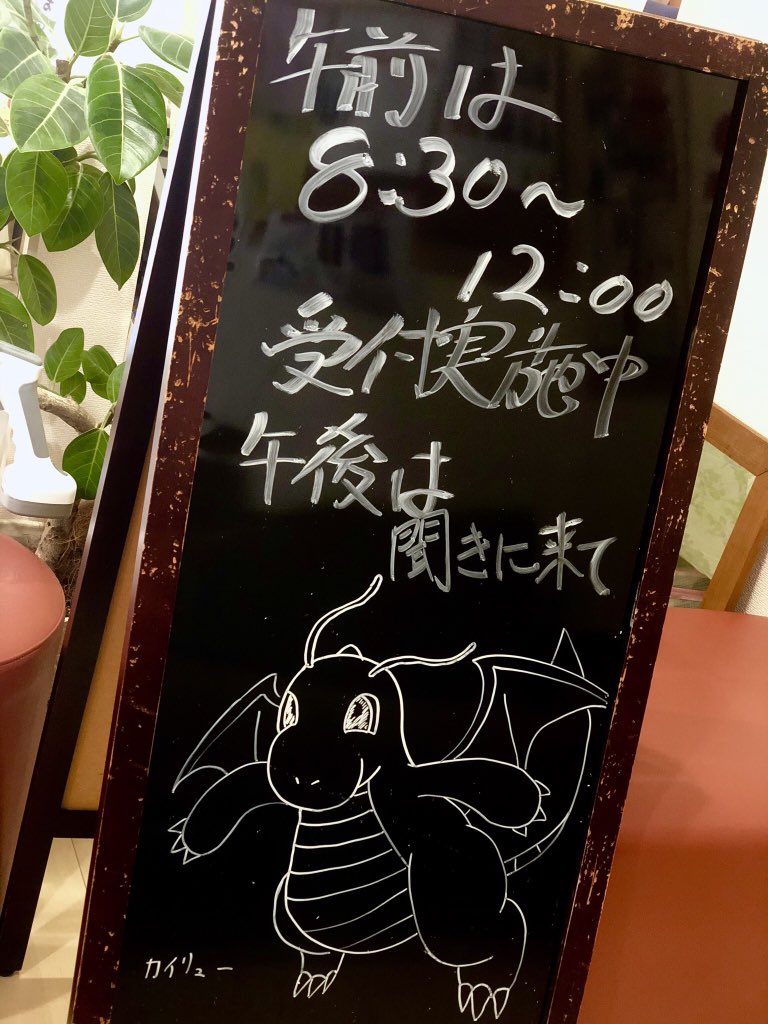 午前は
8:30~
12:00
受付実施中
午後は
聞きに来て
カイリュー